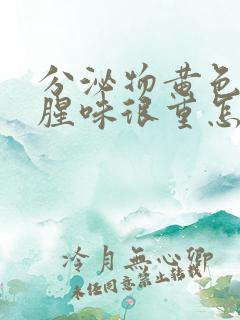 分泌物黄色
腥味很重怎
冷月無心卿
未经同意禁止转载